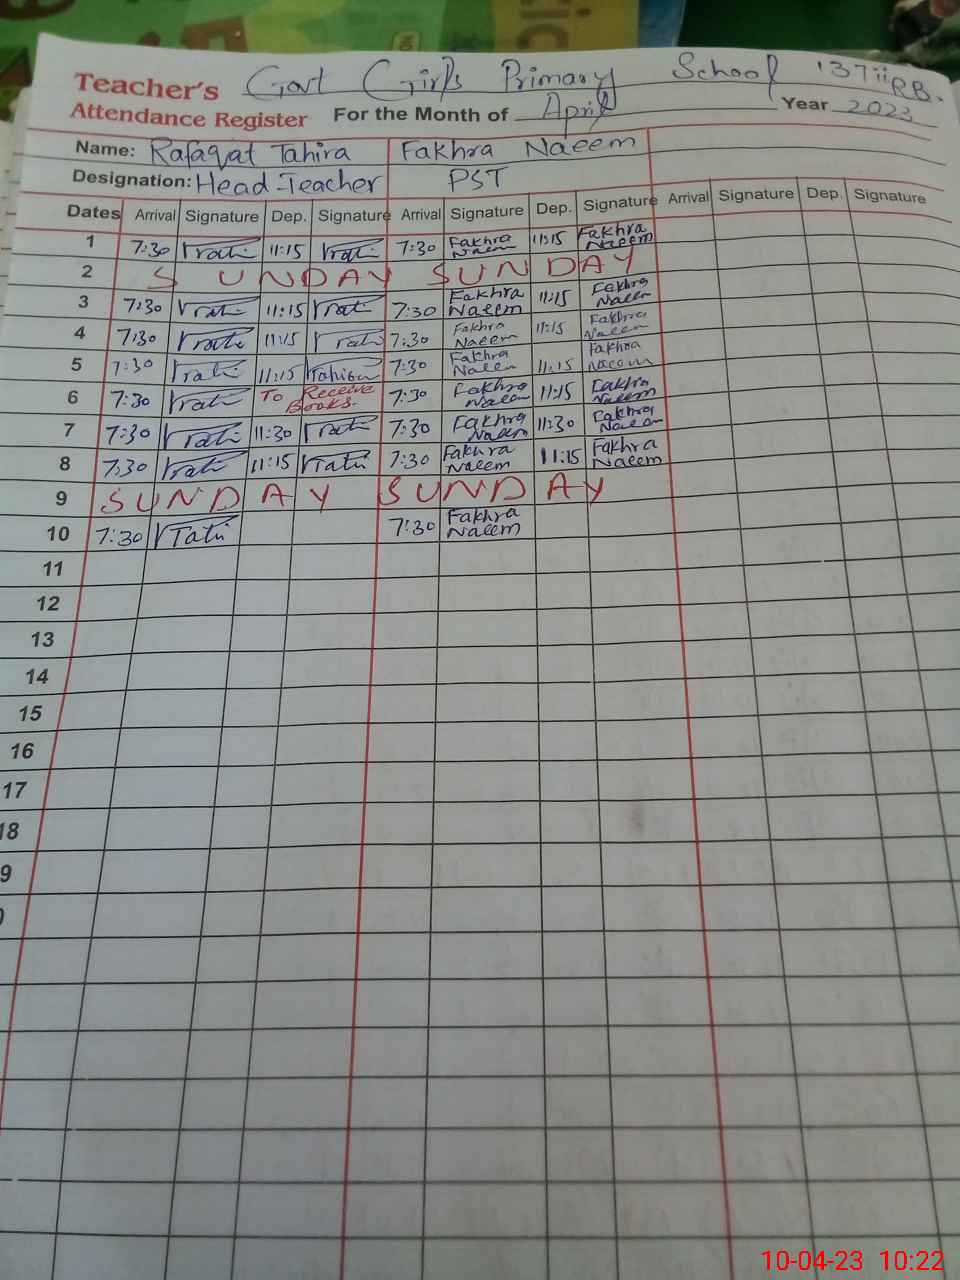 Teacher's Govt Girls Primary School 137ii RB.
Attendance Register For the Month of April Year 2023
Name: Rafaqat Tahira Fakhra Naeem
Designation: Head-Teacher PST
Dates Arrival Signature Dep. Signature Arrival Signature Dep. Signature Arrival Signature Dep. Signature
1 7:30 11:15 7:30 Fakhra Naeem 11:15 Fakhra Naeem
2 SUNDAY SUNDAY
3 7:30 11:15 7:30 Fakhra Naeem 11:15 Fakhra Naeem
4 7:30 11:15 7:30 Fakhra Naeem 11:15 Fakhra Naeem
5 7:30 11:15 7:30 Fakhra Naeem 11:15 Fakhra Naeem
6 7:30 To Receive Books. 7:30 Fakhra Naeem 11:15 Fakhra Naeem
7 7:30 11:30 7:30 Fakhra Naeem 11:30 Fakhra Naeem
8 7:30 11:15 7:30 Fakhra Naeem 11:15 Fakhra Naeem
9 SUNDAY SUNDAY
10 7:30 7:30 Fakhra Naeem
11
12
13
14
15
16
17
18
9
10-04-23 10:22